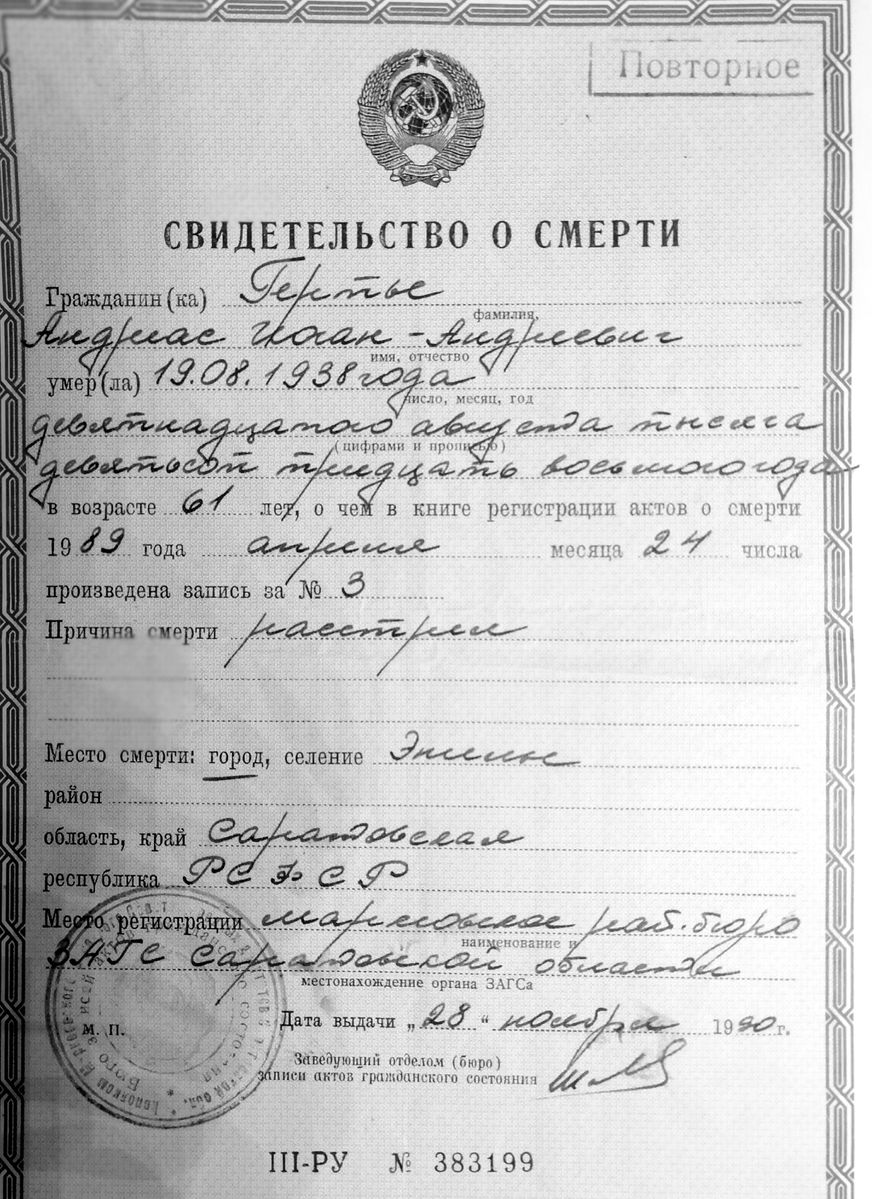 Повторное
СВИДЕТЕЛЬСТВО О СМЕРТИ
Гражданин(ка) Гертье
фамилия,
Андреас Иоган-Андреевич
имя, отчество
умер(ла) 19.08.1938 года
число, месяц, год
девятнадцатого августа тысяча
(цифрами и прописью)
девятьсот тридцать восьмого года
в возрасте 61 лет, о чем в книге регистрации актов о смерти
1989 года апреля месяца 24 числа
произведена запись за № 3
Причина смерти расстрел
Место смерти: город, селение Энгельс
район
область, край Саратовская
республика РСФСР
Место регистрации Марксовское рай.бюро
наименование и
ЗАГС Саратовской области
местонахождение органа ЗАГСа
м. п. Дата выдачи „28“ ноября 1990 г.
Заведующий отделом (бюро)
записи актов гражданского состояния
III-РУ № 383199